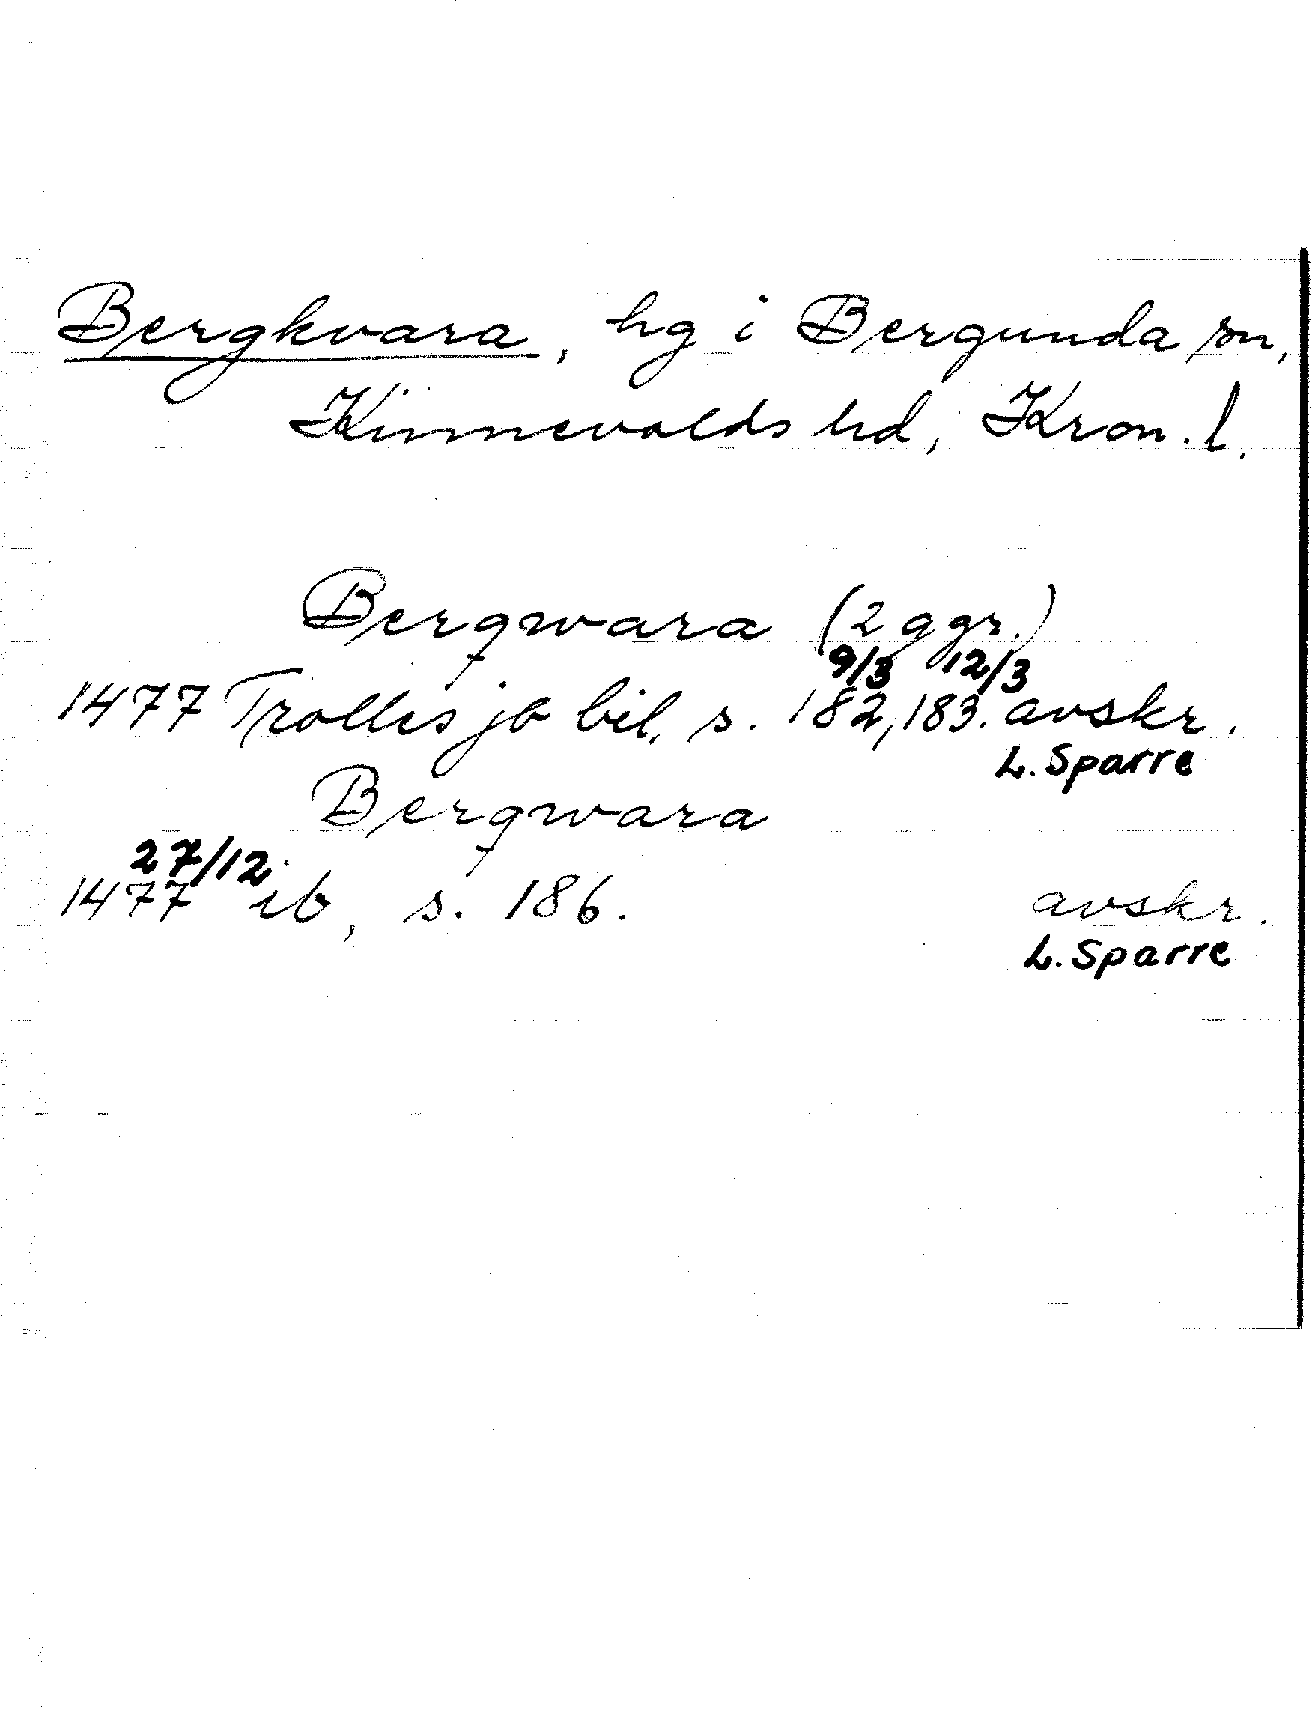 Bergkvara, hg i Bergunda sn,
Kinnevalds hd, Kron. l.
Bergqwara (2 ggr.)
9/3 12/3
1477 Trolles jb bil. s. 182, 183. avskr.
L. Sparre
Bergqwara
27/12
1477 ib, s. 186. avskr.
L. Sparre